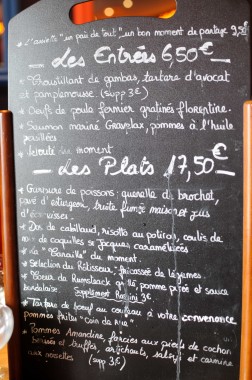 L'assiette "un peu de tout", un bon moment de partage 9,50€
Les Entrées 6,50€
* Croustillant de gambas, tartare d'avocat
et pamplemousse. (supp 3€)
* Oeufs de poule fermier gratinés florentine.
* Saumon mariné Gravelax, pommes à l'huile
persillées
* Velouté du moment
Les Plats 17,50€
* de poissons: quenelle de brochet,
pavé d'esturgeon, truite fumée maison et jus
d'écrevisses.
* Dos de cabillaud, risotto au potiron, coulis de
noix de coquilles St Jacques caramélisées
* La "Canaille" du moment.
* Sélection du Rôtisseur, fricassée de légumes.
* Coeur de Rumsteack grillé, pomme purée et sauce
bordelaise Supplément Rossini 3€
* Tartare de boeuf au couteau à votre convenance
pommes frites "coin de rue"
* Pommes Amandine, farcies aux pieds de cochon
et truffes, artichauts, salsify et
aux noisettes (supp 3€)